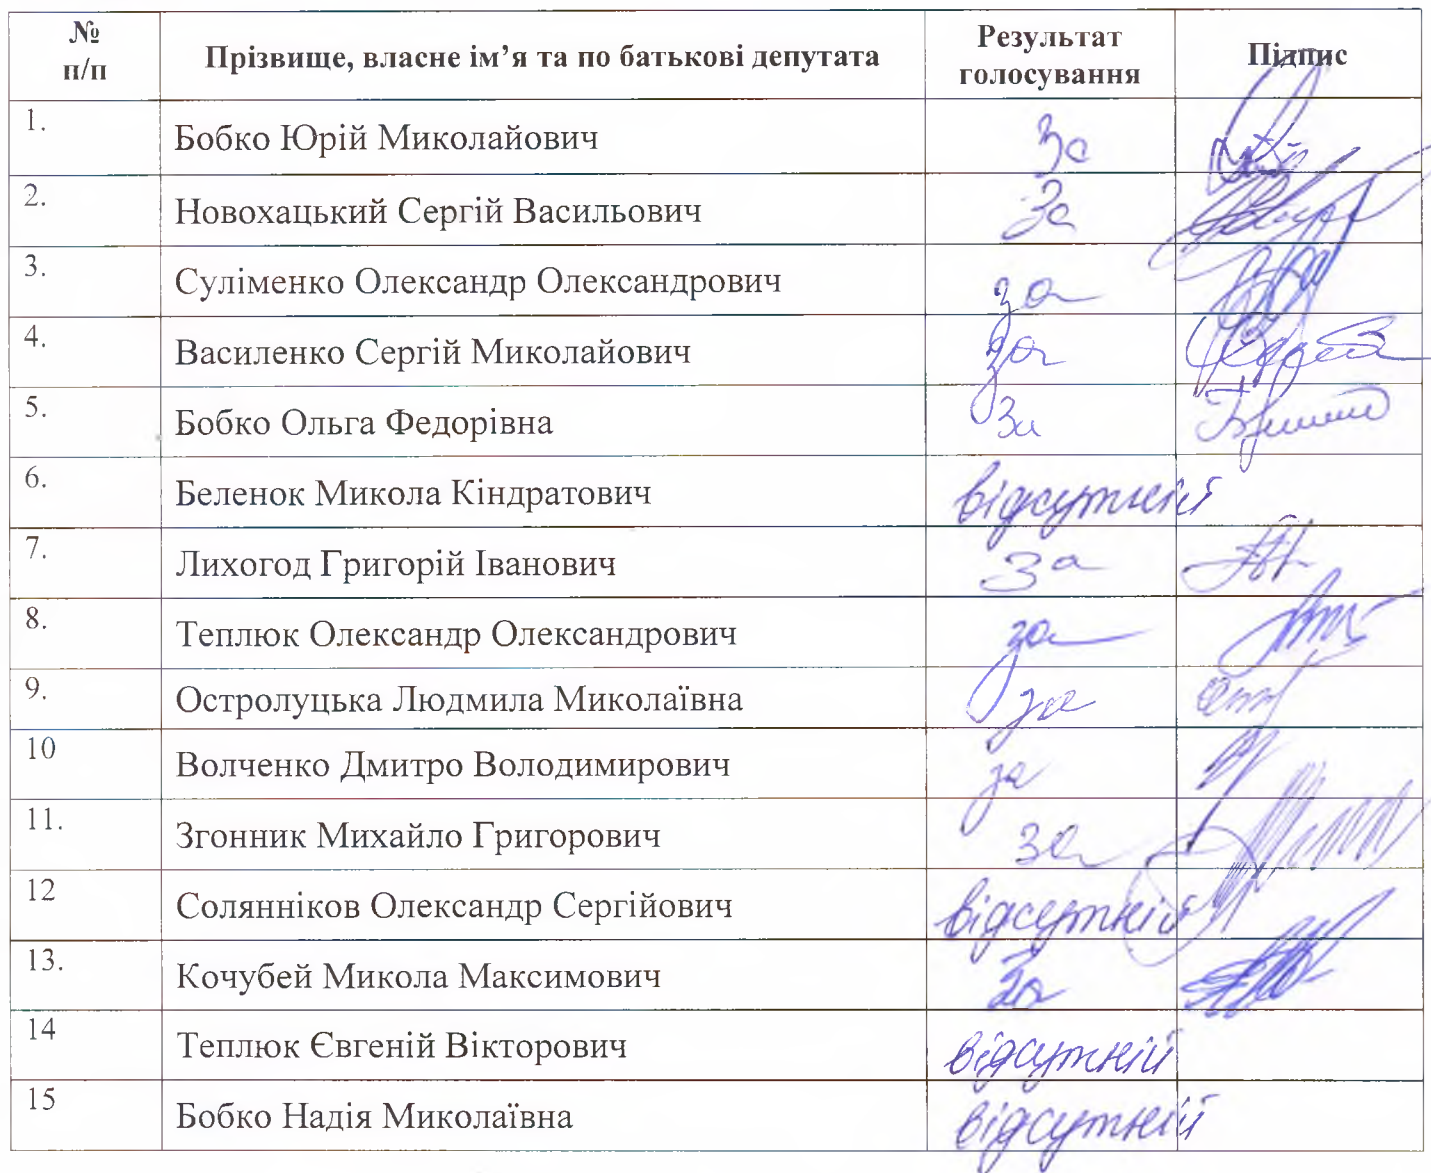 № п/п Прізвище, власне ім’я та по батькові депутата Результат голосування Підпис
1. Бобко Юрій Миколайович За
2. Новохацький Сергій Васильович За
3. Суліменко Олександр Олександрович за
4. Василенко Сергій Миколайович за
5. Бобко Ольга Федорівна За
6. Беленок Микола Кіндратович відсутній
7. Лихогод Григорій Іванович За
8. Теплюк Олександр Олександрович за
9. Остролуцька Людмила Миколаївна за
10 Волченко Дмитро Володимирович за
11. Згонник Михайло Григорович за
12 Солянніков Олександр Сергійович відсутній
13. Кочубей Микола Максимович За
14 Теплюк Євгеній Вікторович відсутній
15 Бобко Надія Миколаївна відсутній